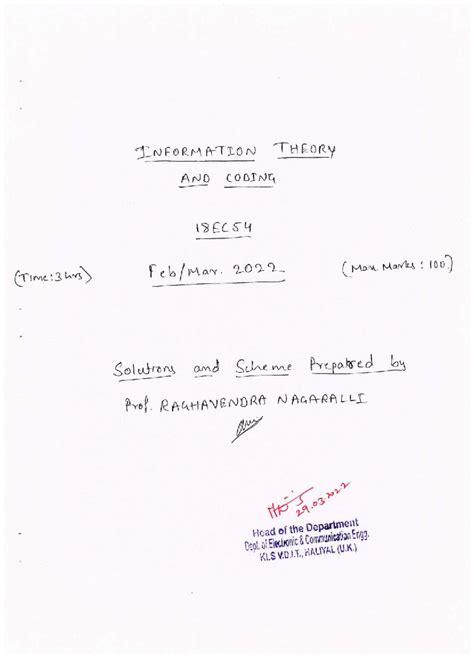 INFORMATION THEORY
AND CODING
18EC54
(Time:3hrs) Feb/Mar. 2022 (Max. Marks : 100)
Solutions and Scheme Prepared by
Prof. RAGHAVENDRA NAGARALLI
29.03.2022
Head of the Department
Dept. of Electronic & Communication Engg.
KLS V.D.I.T., HALIYAL (U.K.)